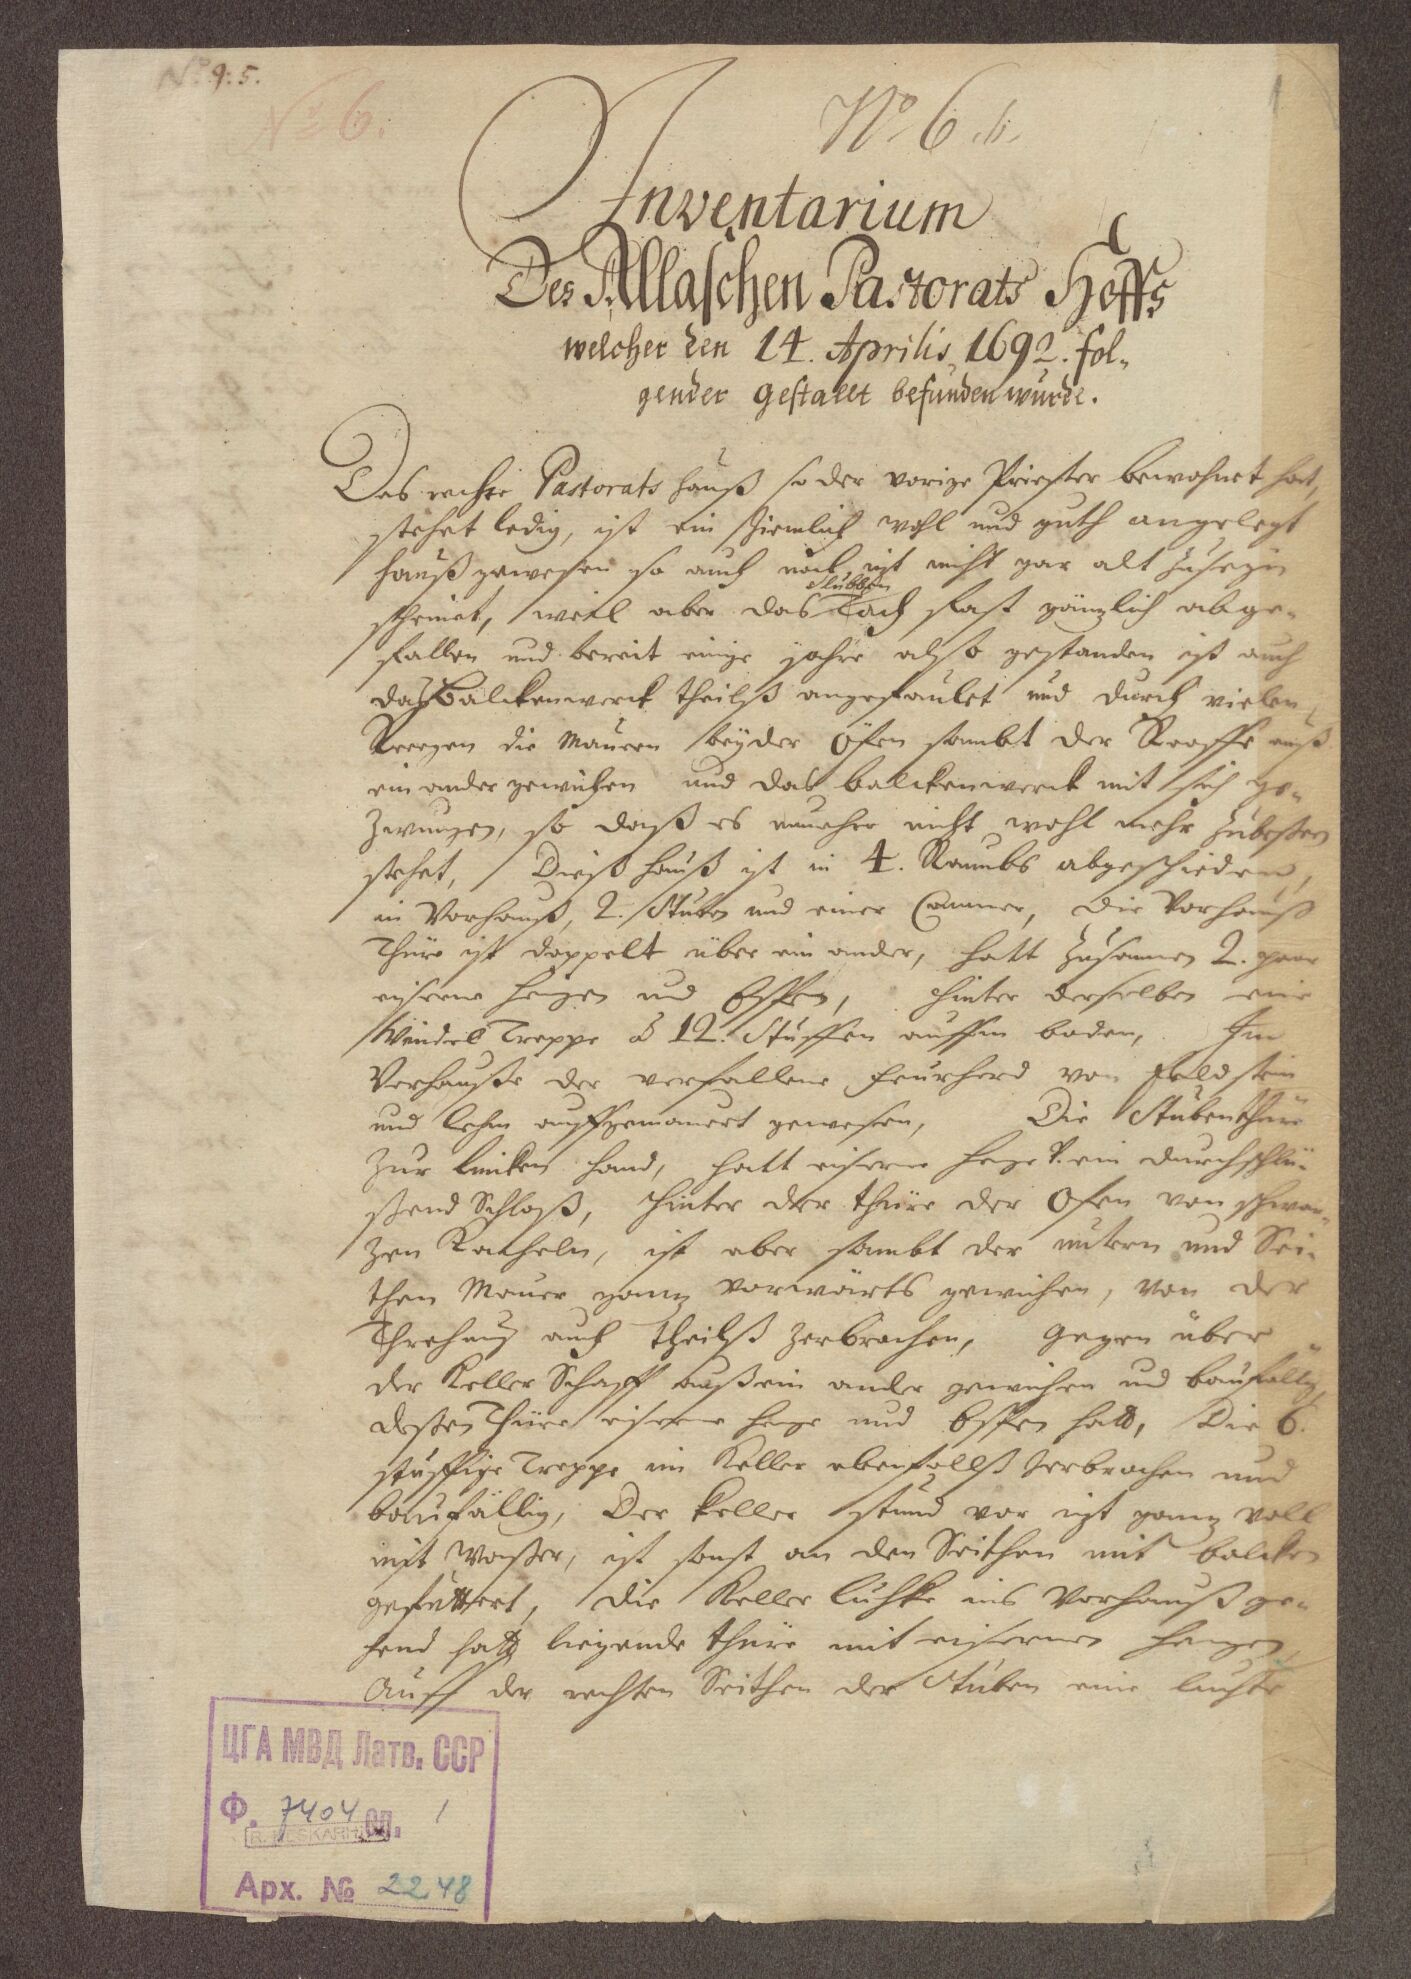 No 9:5.
No 6.
No 6.b.
1
Inventarium
Des Allaschen Pastorats Hoffs
welcher den 14. Aprilis 1692. fol-
gender gestallt befunden wurde.
Das rechte Pastorats hauß so der vorige Priester bewohnet hat,
stehet ledig, ist ein ziemlich wohl und guth angelegt
hauß gewesen so auch noch ist nicht gar alt zuseyn
Stubben
scheinet, weil aber das Tach fast gäntzlich abge-
fallen und bereit einige jahre also gestanden ist auch
daß Balckenwerck theilß angefaulet und durch vielen
Reegen die Mauren beyder Öfen sambt der auß
ein ander gewichen und das balckenwerck mit sich ge-
zwungen, so daß es nunehr nicht wohl mehr zubeßern
stehet, Dieß hauß ist in 4. Raumbs abgeschieden,
in Vorhauß, 2. Stuben und einer Cammer, die Vorhauß
Thüre ist doppelt über ein ander, hatt zusamen 2. paar
eiserne hengen und , hinter derselben eine
Windel Treppe à 12. Stuffen auffm boden, Im
Vorhauße der verfallene feurherd von feldstein
und lehm auffgemauert gewesen, Die Stubenthüre
zur lincken hand, hatt eiserne henge ein durchschlü-
ßend Schloß, hinter der thüre der Ofen von schwar-
zen Kacheln, ist aber sambt der untern und Sei-
then Mauer gantz vorwärts gewichen, von der
auch theilß zerbrochen, gegen über
der Keller Schaff auß ein ander gewichen und baufällig,
deßen Thüre eiserne henge und hatt, Die 6.
stuffige Treppe im Keller ebenfallß zerbrochen und
baufällig, Der Keller stund vor itzt gantz voll
mit Waßer, ist sonst an den Seithen mit balcken
gefuttert, die Keller luhke ins Vorhauß ge-
hend hatt liegende thüre mit eisernen hengen,
Auff der rechten Seithen der Stuben eine luchte
ЦГА МВД Латв. ССР
Ф. 7404 оп. 1
Арх. № 2248